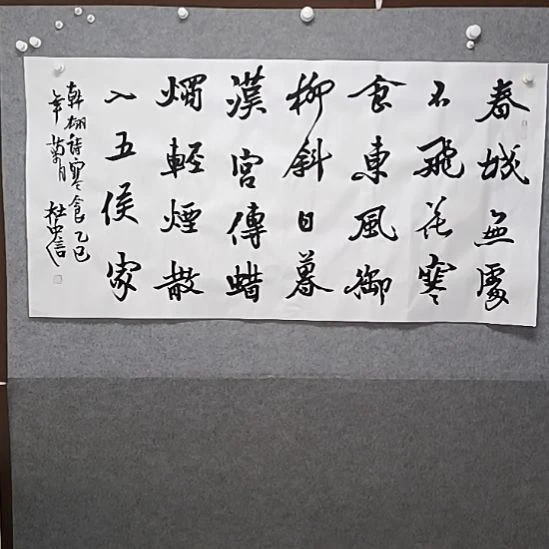 春城無處
不飛花寒
食東風御
柳斜日暮
漢宮傳蠟
燭輕煙散
入五侯家
韓翃詩寒食乙巳
年菊月 杜中信